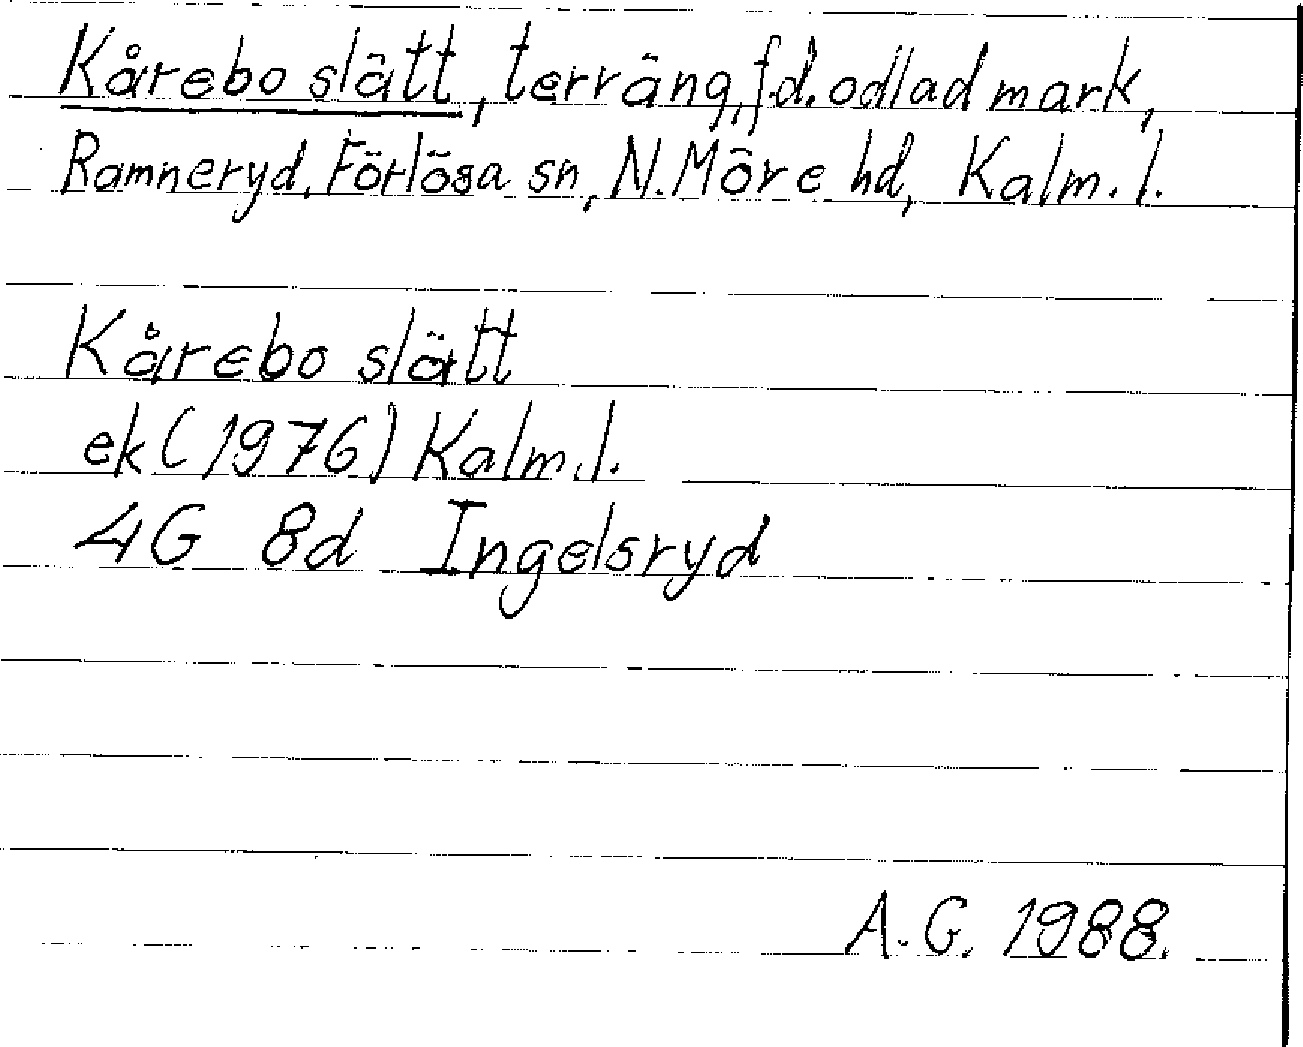 Kårebo slätt, terräng, f.d. odlad mark,
Ramneryd, Förlösa sn, N. Möre hd, Kalm. l.
Kårebo slätt
ek (1976) Kalm. l.
4G 8d Ingelsryd
A. G. 1988.